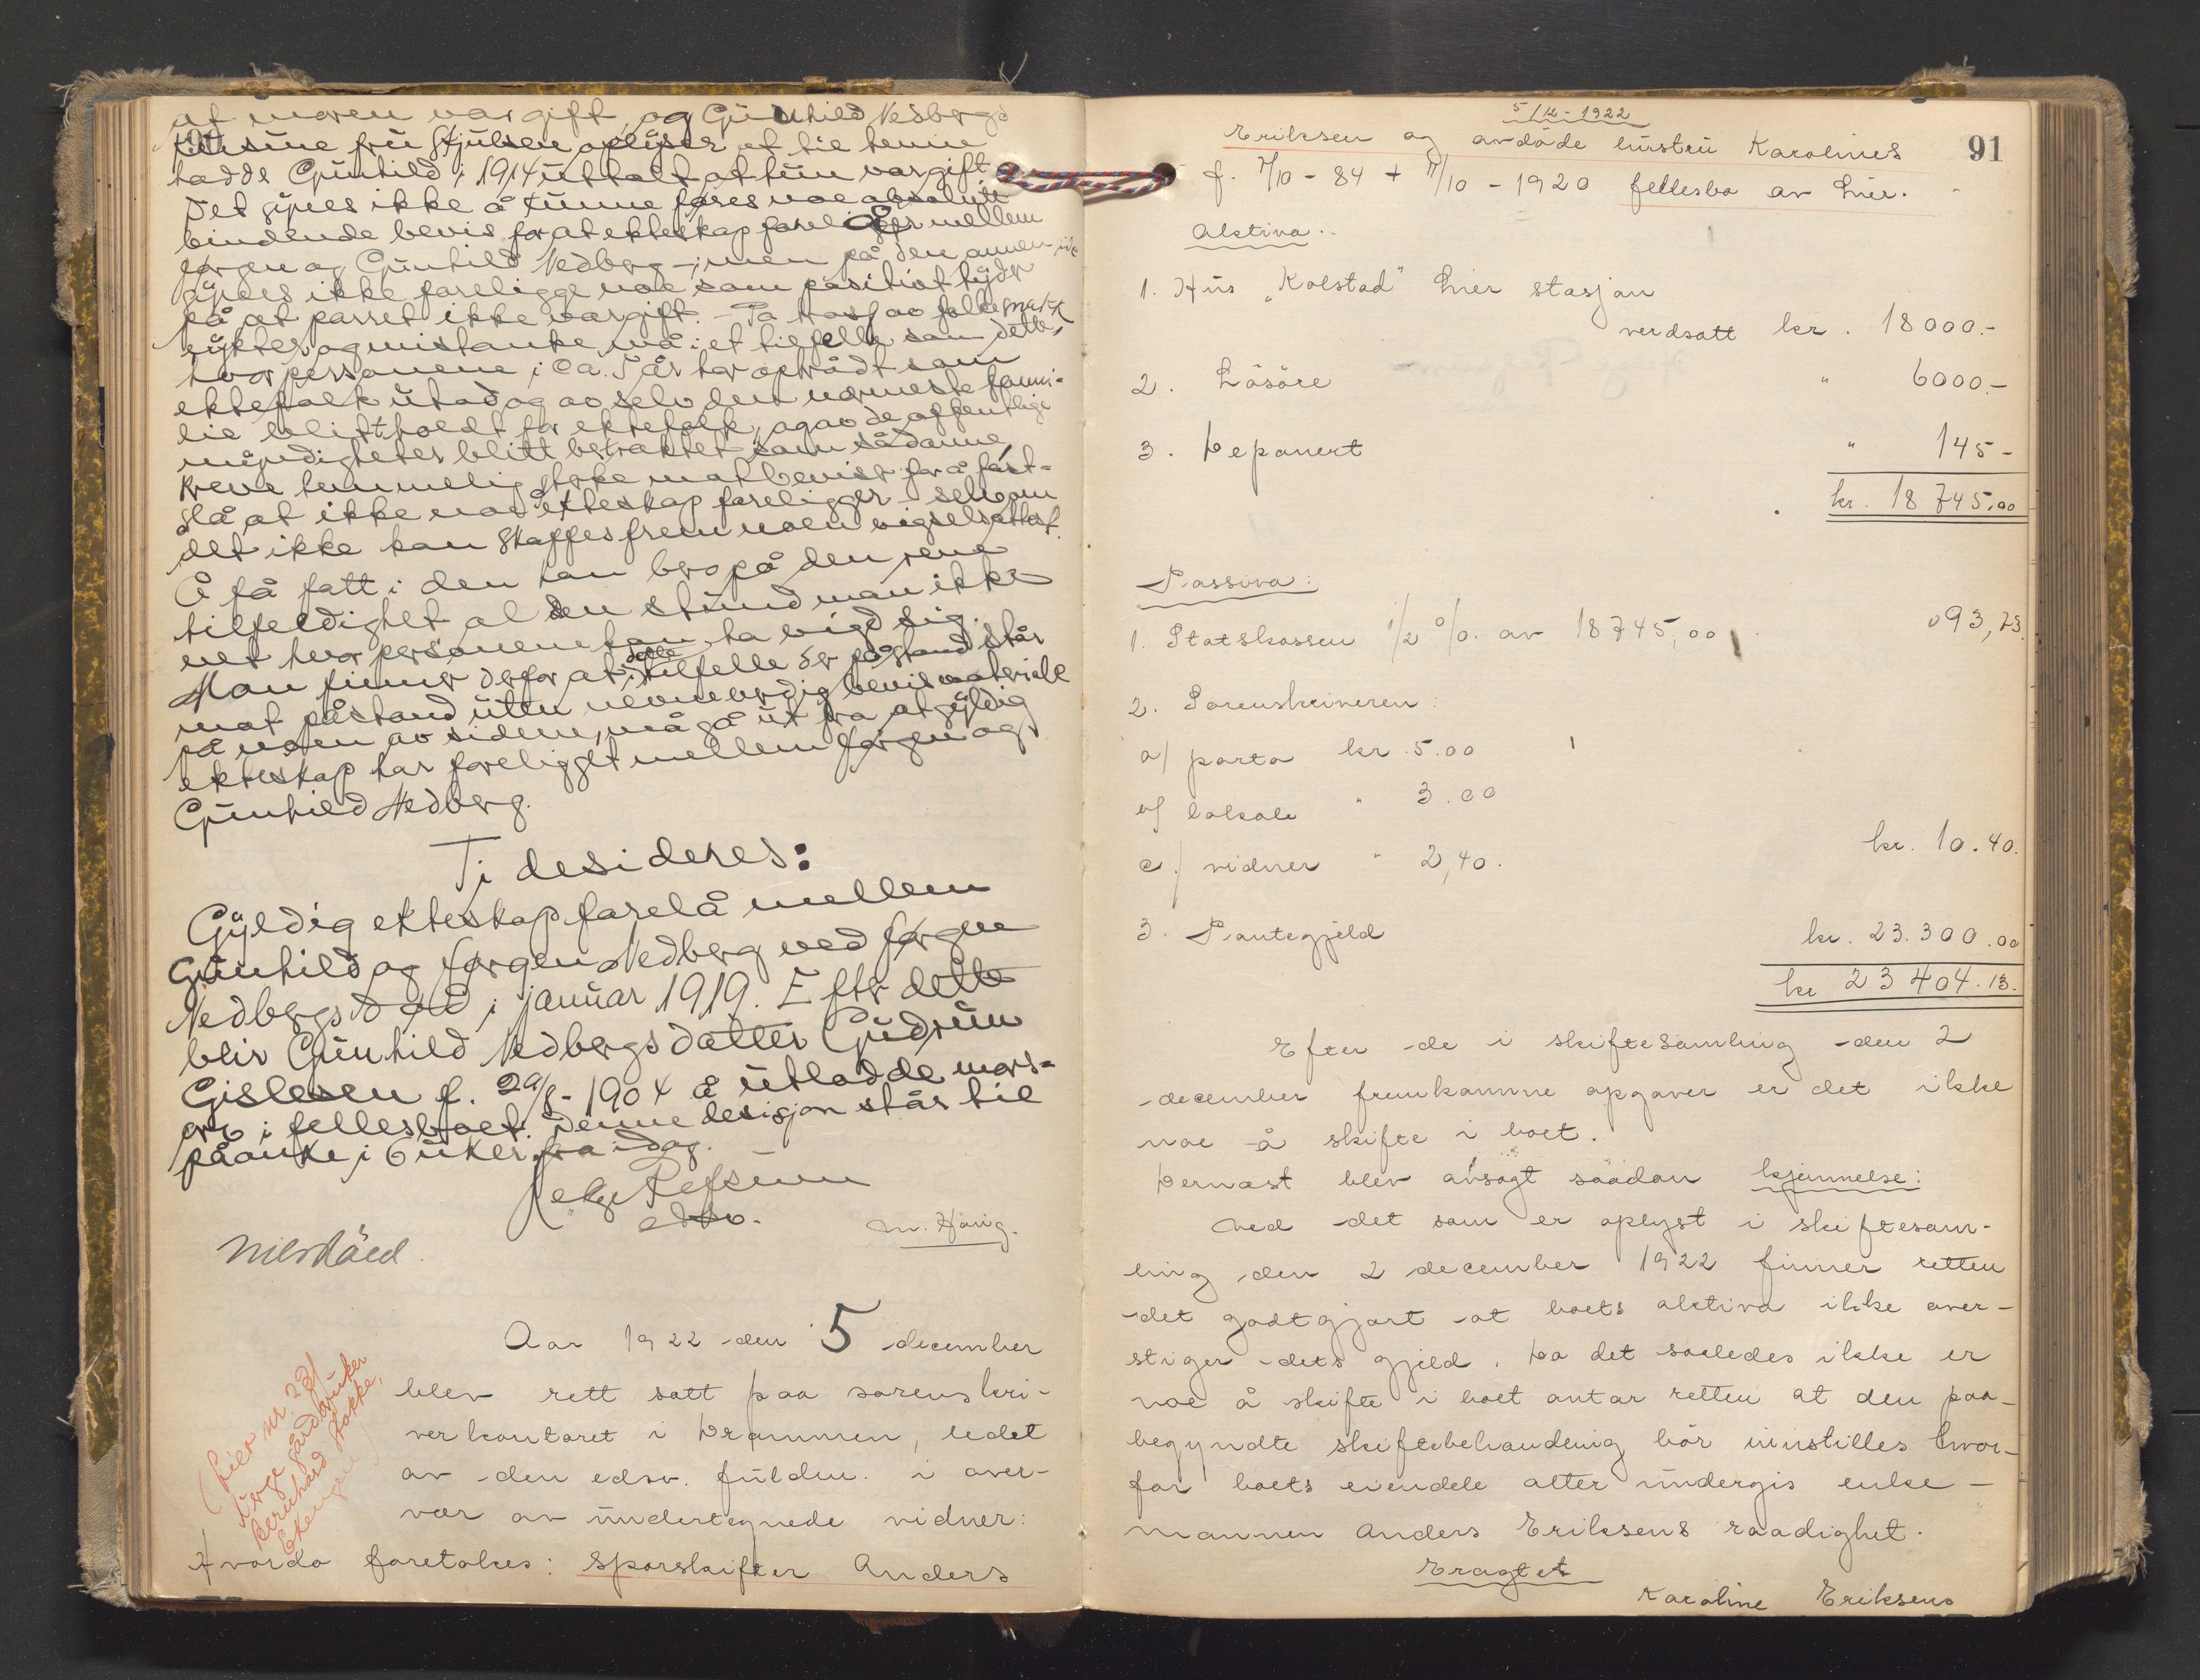 at moren var gift, og Gunhild Nedbergs
kusine fru Hjulsen oplyser at til henne
hadde Gunhild i 1914 uttalt at hun var gift
Det synes ikke å kunne føres noe absolutt
bindende bevis for at ekteskap foreligger mellem
Jørgen og Gunhild Nedberg – men på den annen side
synes ikke foreligge noe som positivt tyder
på at parret ikke var gift. – På tross av folkesnakk
rykter og mistanke må i et tilfelle som dette,
hvor personene i ca. 5 år har optrådt som
ektefolk utad og av selv den nærmeste fami-
lie blitt holdt for ektefolk, og av de offentlige
myndigheter blitt betraktet som sådanne,
kreve temmelig sterke motbeviser for å fast-
slå at ikke noe ekteskap foreligger – selv om
det ikke kan skaffes frem noen vigselsattest.
Å få fatt i den kan bero på den rene
tilfeldighet al den stund man ikke
vet hvor personene kan ha vigd sig.
Man finner derfor at i dette tilfelle der påstand står
mot påstand uten nevneverdig bevismateriale
på noen av sidene, må gå ut fra at gyldig
ekteskap har foreligget mellem Jørgen og
Gunhild Nedberg.
Ti desideres:
Gyldig ekteskap forelå mellem
Gunhild og Jørgen Nedberg ved Jørgen
Nedbergs død i januar 1919. Efter dette
blir Gunhild Nedbergs datter Gudrun
Gislesen f. 29/8-1904 å utlodde mors-
arv i fellesboet. Denne desisjon står til
påanke i 6 uker fra idag.
Helge Refsum
edsv.
M. Hårig.
Nils Råed.
Aar 1922 den 5 december
blev rett satt paa sorenskri-
verkontoret i Drammen, ledet
av den edsv. fuldm. i over-
vær av undertegnede vidner:
Hvorda foretokes: Sporskifter Anders
(Lier nr. 231
Bernhard
91
5/12-1922
Eriksen og avdøde hustru Karolines
f. 7/10-84 + 11/10-1920 fellesbo av Lier.
Aktiva..
1. Hus "Kolstad" Lier stasjon
verdsatt kr. 18000.-
2. Løsøre " 6000.-
3. Deponert " 145-
kr. 18745,00
Passiva:
1. Statskassen 1/2 %. av 18745,00 93,73.
2. Sorenskriveren:
a/ porto kr. 5.00
b/ lokale " 3.00
c/ vidner " 2,40. kr. 10.40.
3. Pantegjeld kr. 23.300.00
kr 23404.13.
Efter de i skiftesamling den 2
december fremkomne opgaver er det ikke
noe å skifte i boet.
Dernæst blev avsagt saadan kjennelse:
Ved det som er oplyst i skiftesam-
ling den 2 december 1922 finner retten
det godtgjort at boets aktiva ikke over-
stiger dets gjeld. Da det saaledes ikke er
noe å skifte i boet antar retten at den paa-
begyndte skiftebehandling bør innstilles hvor-
for boets eiendele atter undergis enke-
mannen Anders Eriksens raadighet.
Eragtet
Karoline Eriksens